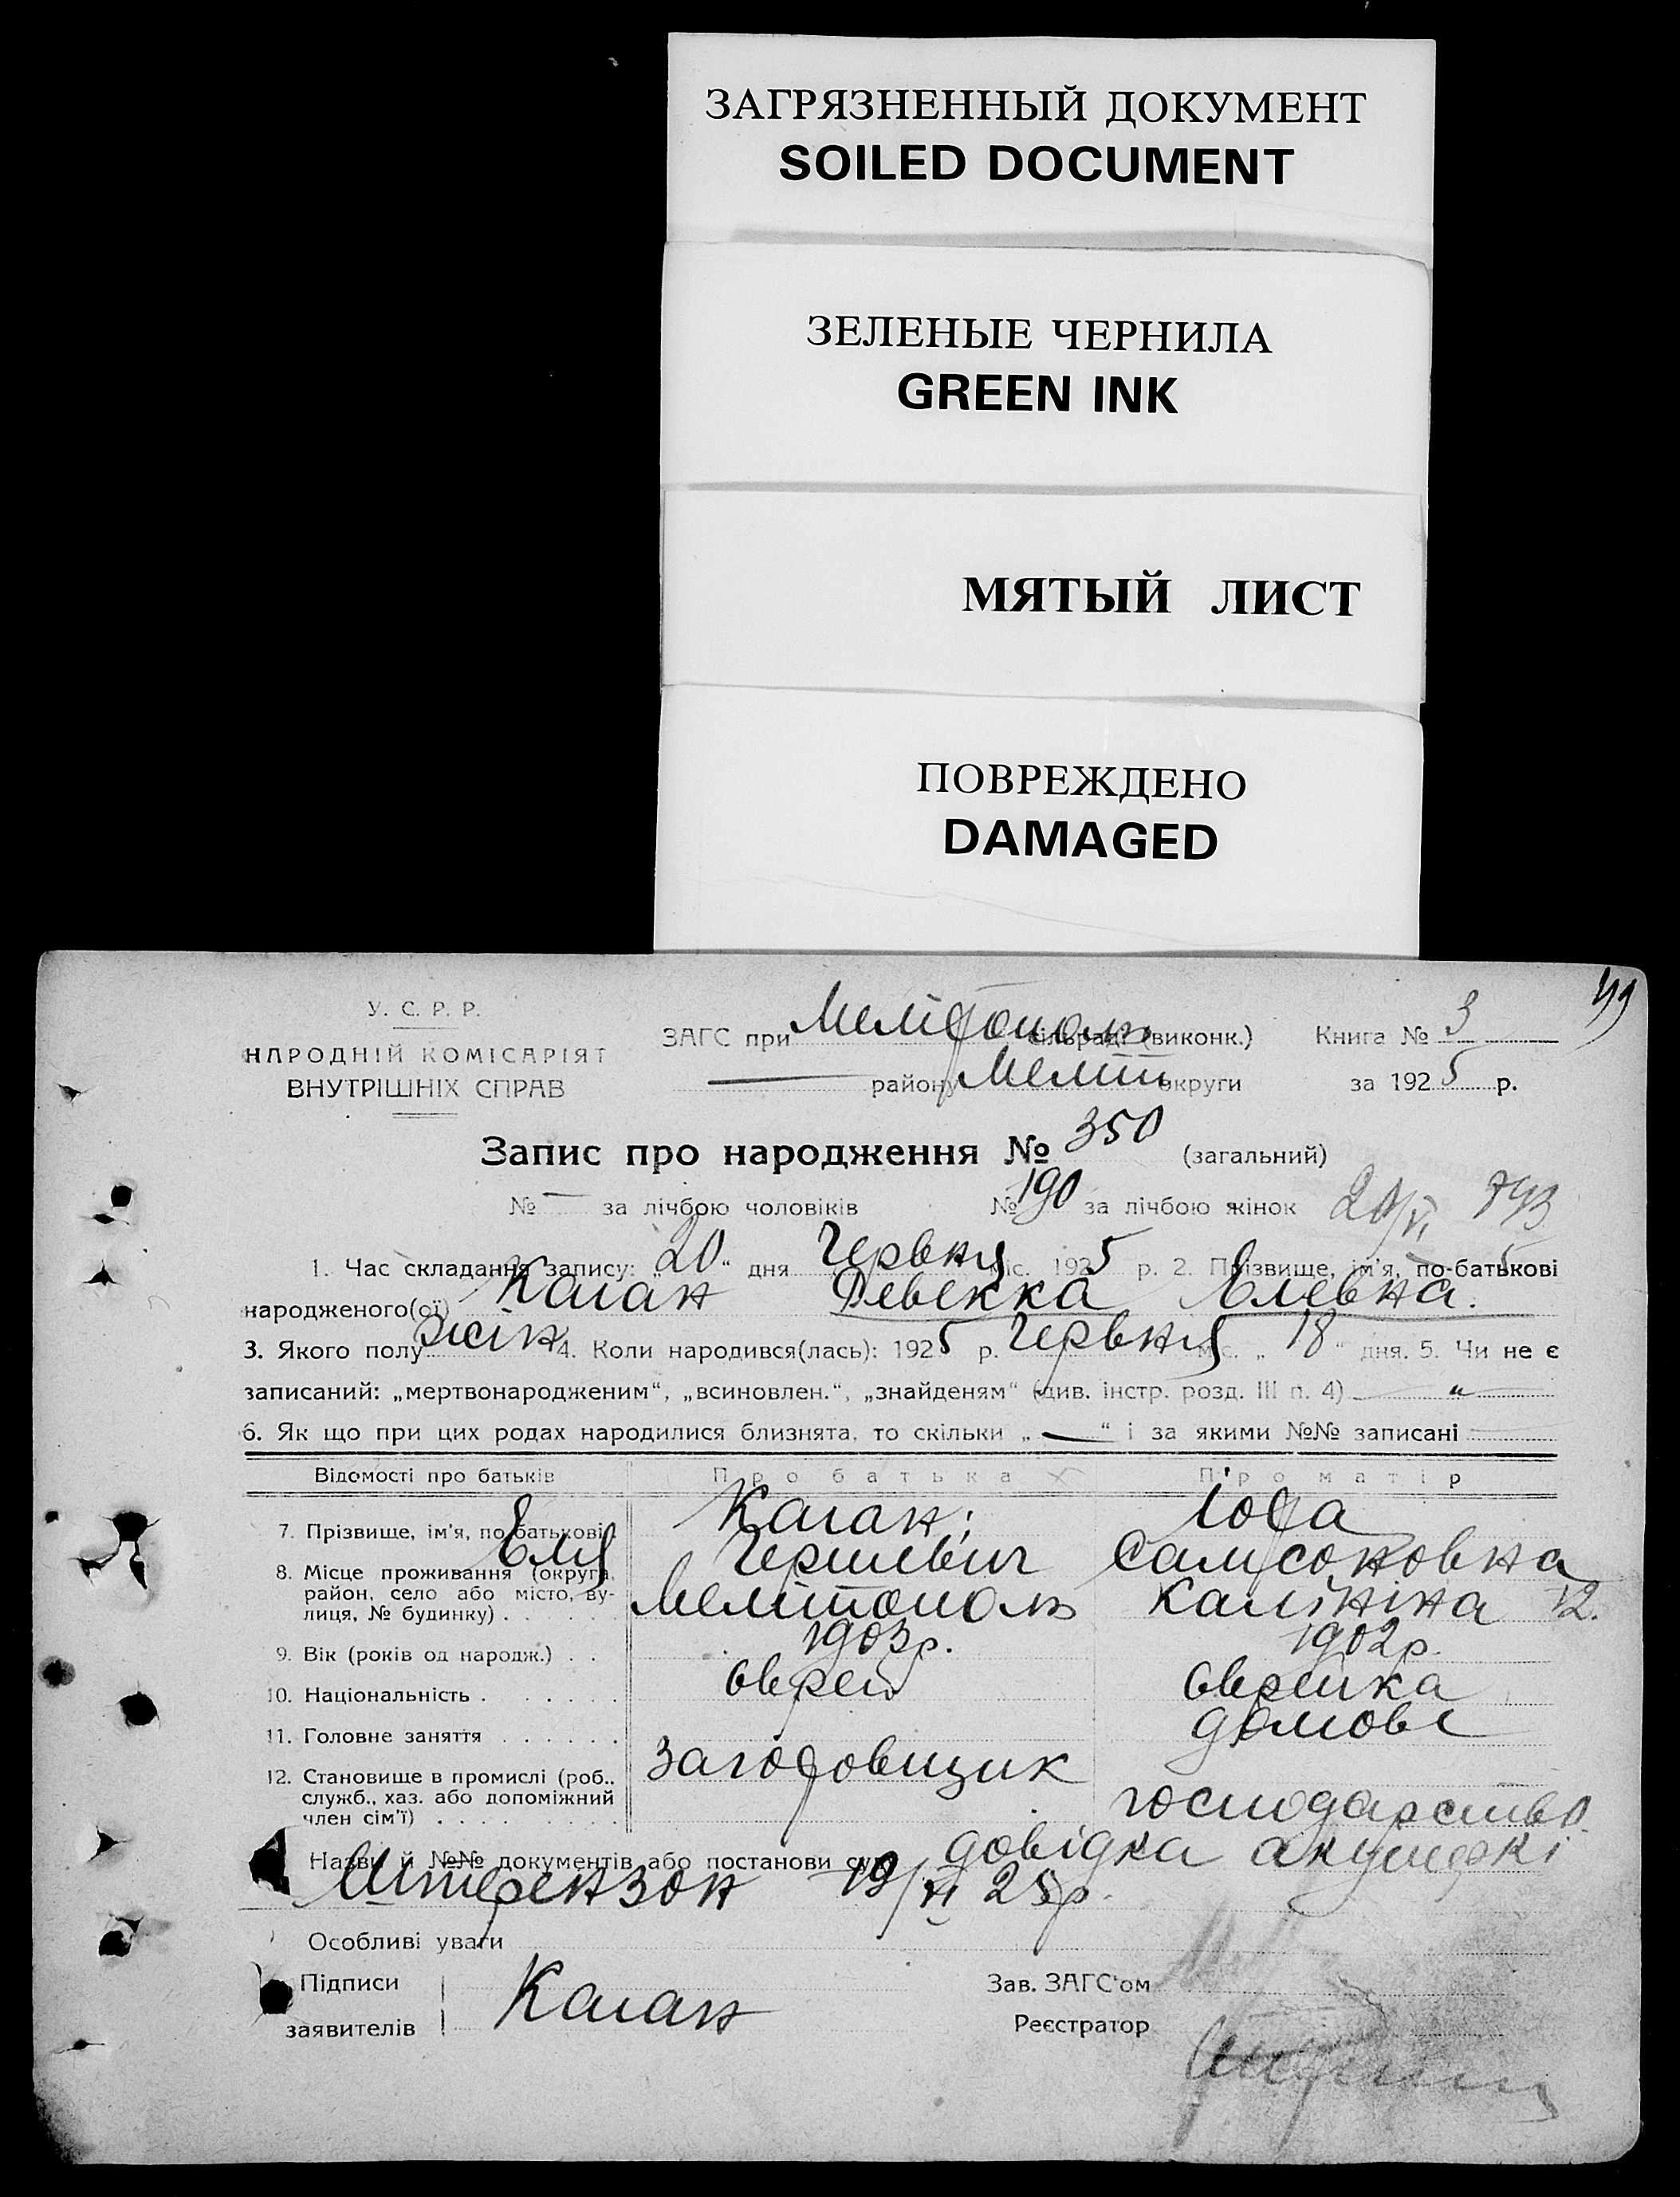 ЗАГРЯЗНЕННЫЙ ДОКУМЕНТ
SOILED DOCUMENT
ЗЕЛЕНЫЕ ЧЕРНИЛА
GREEN INK
МЯТЫЙ ЛИСТ
ПОВРЕЖДЕНО
DAMAGED
У. С. Р. Р.
НАРОДНІЙ КОМІСАРІЯТ
ВНУТРІШНІХ СПРАВ
ЗАГС при Мелітополь сільраді (виконк.) Книга № 3
— району Меліт округи за 1925 р.
Запис про народження № 350 (загальний)
№ — за лічбою чоловіків № 190 за лічбою жінок
1. Час складання запису: „20“ дня Червня міс. 1925 р. 2. Прізвище, ім'я, по-батькові
народженого(ої) Каган Ревекка Елевна.
3. Якого полу жін 4. Коли народився(лась): 1925 р. Червня міс. „18“ дня. 5. Чи не є
записаний: „мертвонародженим“, „всиновлен.“, „знайденям“ (див. інстр. розд. III п. 4) — „ —
6. Як що при цих родах народилися близнята, то скільки „—“ і за якими №№ записані
Відомості про батьків Про батька Про матір
7. Прізвище, ім'я, по батькові Каган; Юфа
Еля Гершевич Самсоновна
8. Місце проживання (округа, район, село або місто, вулиця, № будинку) . Мелітополь Калініна 12.
9. Вік (років од народж.) . . 1903р. 1902р.
10. Національність . . . . . . єврей єврейка
11. Головне заняття . . . . . . домове
12. Становище в промислі (роб., служб., хаз. або допоміжний член сім'ї) . . . . Заготовщик господарство.
Назви й №№ документів або постанови суду довідка акушеркі
Штерензон 19/VI 25р.
Особливі уваги
Підписи заявителів Каган
Зав. ЗАГС'ом
Реєстратор